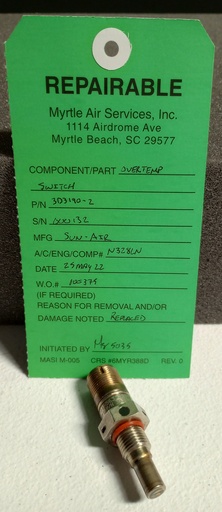 REPAIRABLE
Myrtle Air Services, Inc.
1114 Airdrome Ave
Myrtle Beach, SC 29577
COMPONENT/PART OVERTEMP
SWITCH
P/N 3D3190-2
S/N XXX132
MFG SUN-AIR
A/C/ENG/COMP# N328LN
DATE 25 MAY 22
W.O.# 100375
(IF REQUIRED)
REASON FOR REMOVAL AND/OR
DAMAGE NOTED REPLACED
INITIATED BY
MASI M-005 CRS #6MYR388D REV. 0